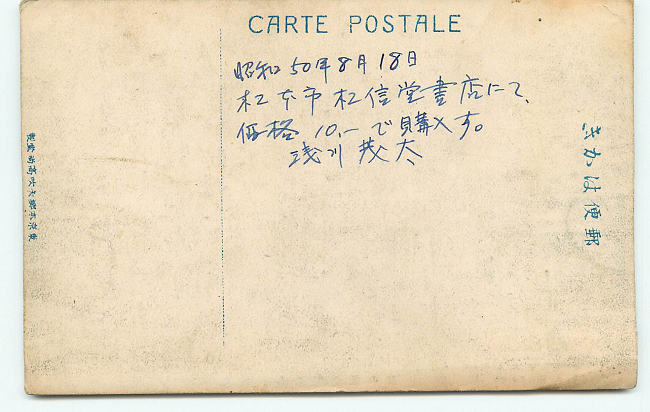 CARTE POSTALE
昭和50年8月18日
松本市松信堂書店にて、
価格 10.-で購入す。
浅川茂太
郵便はかき